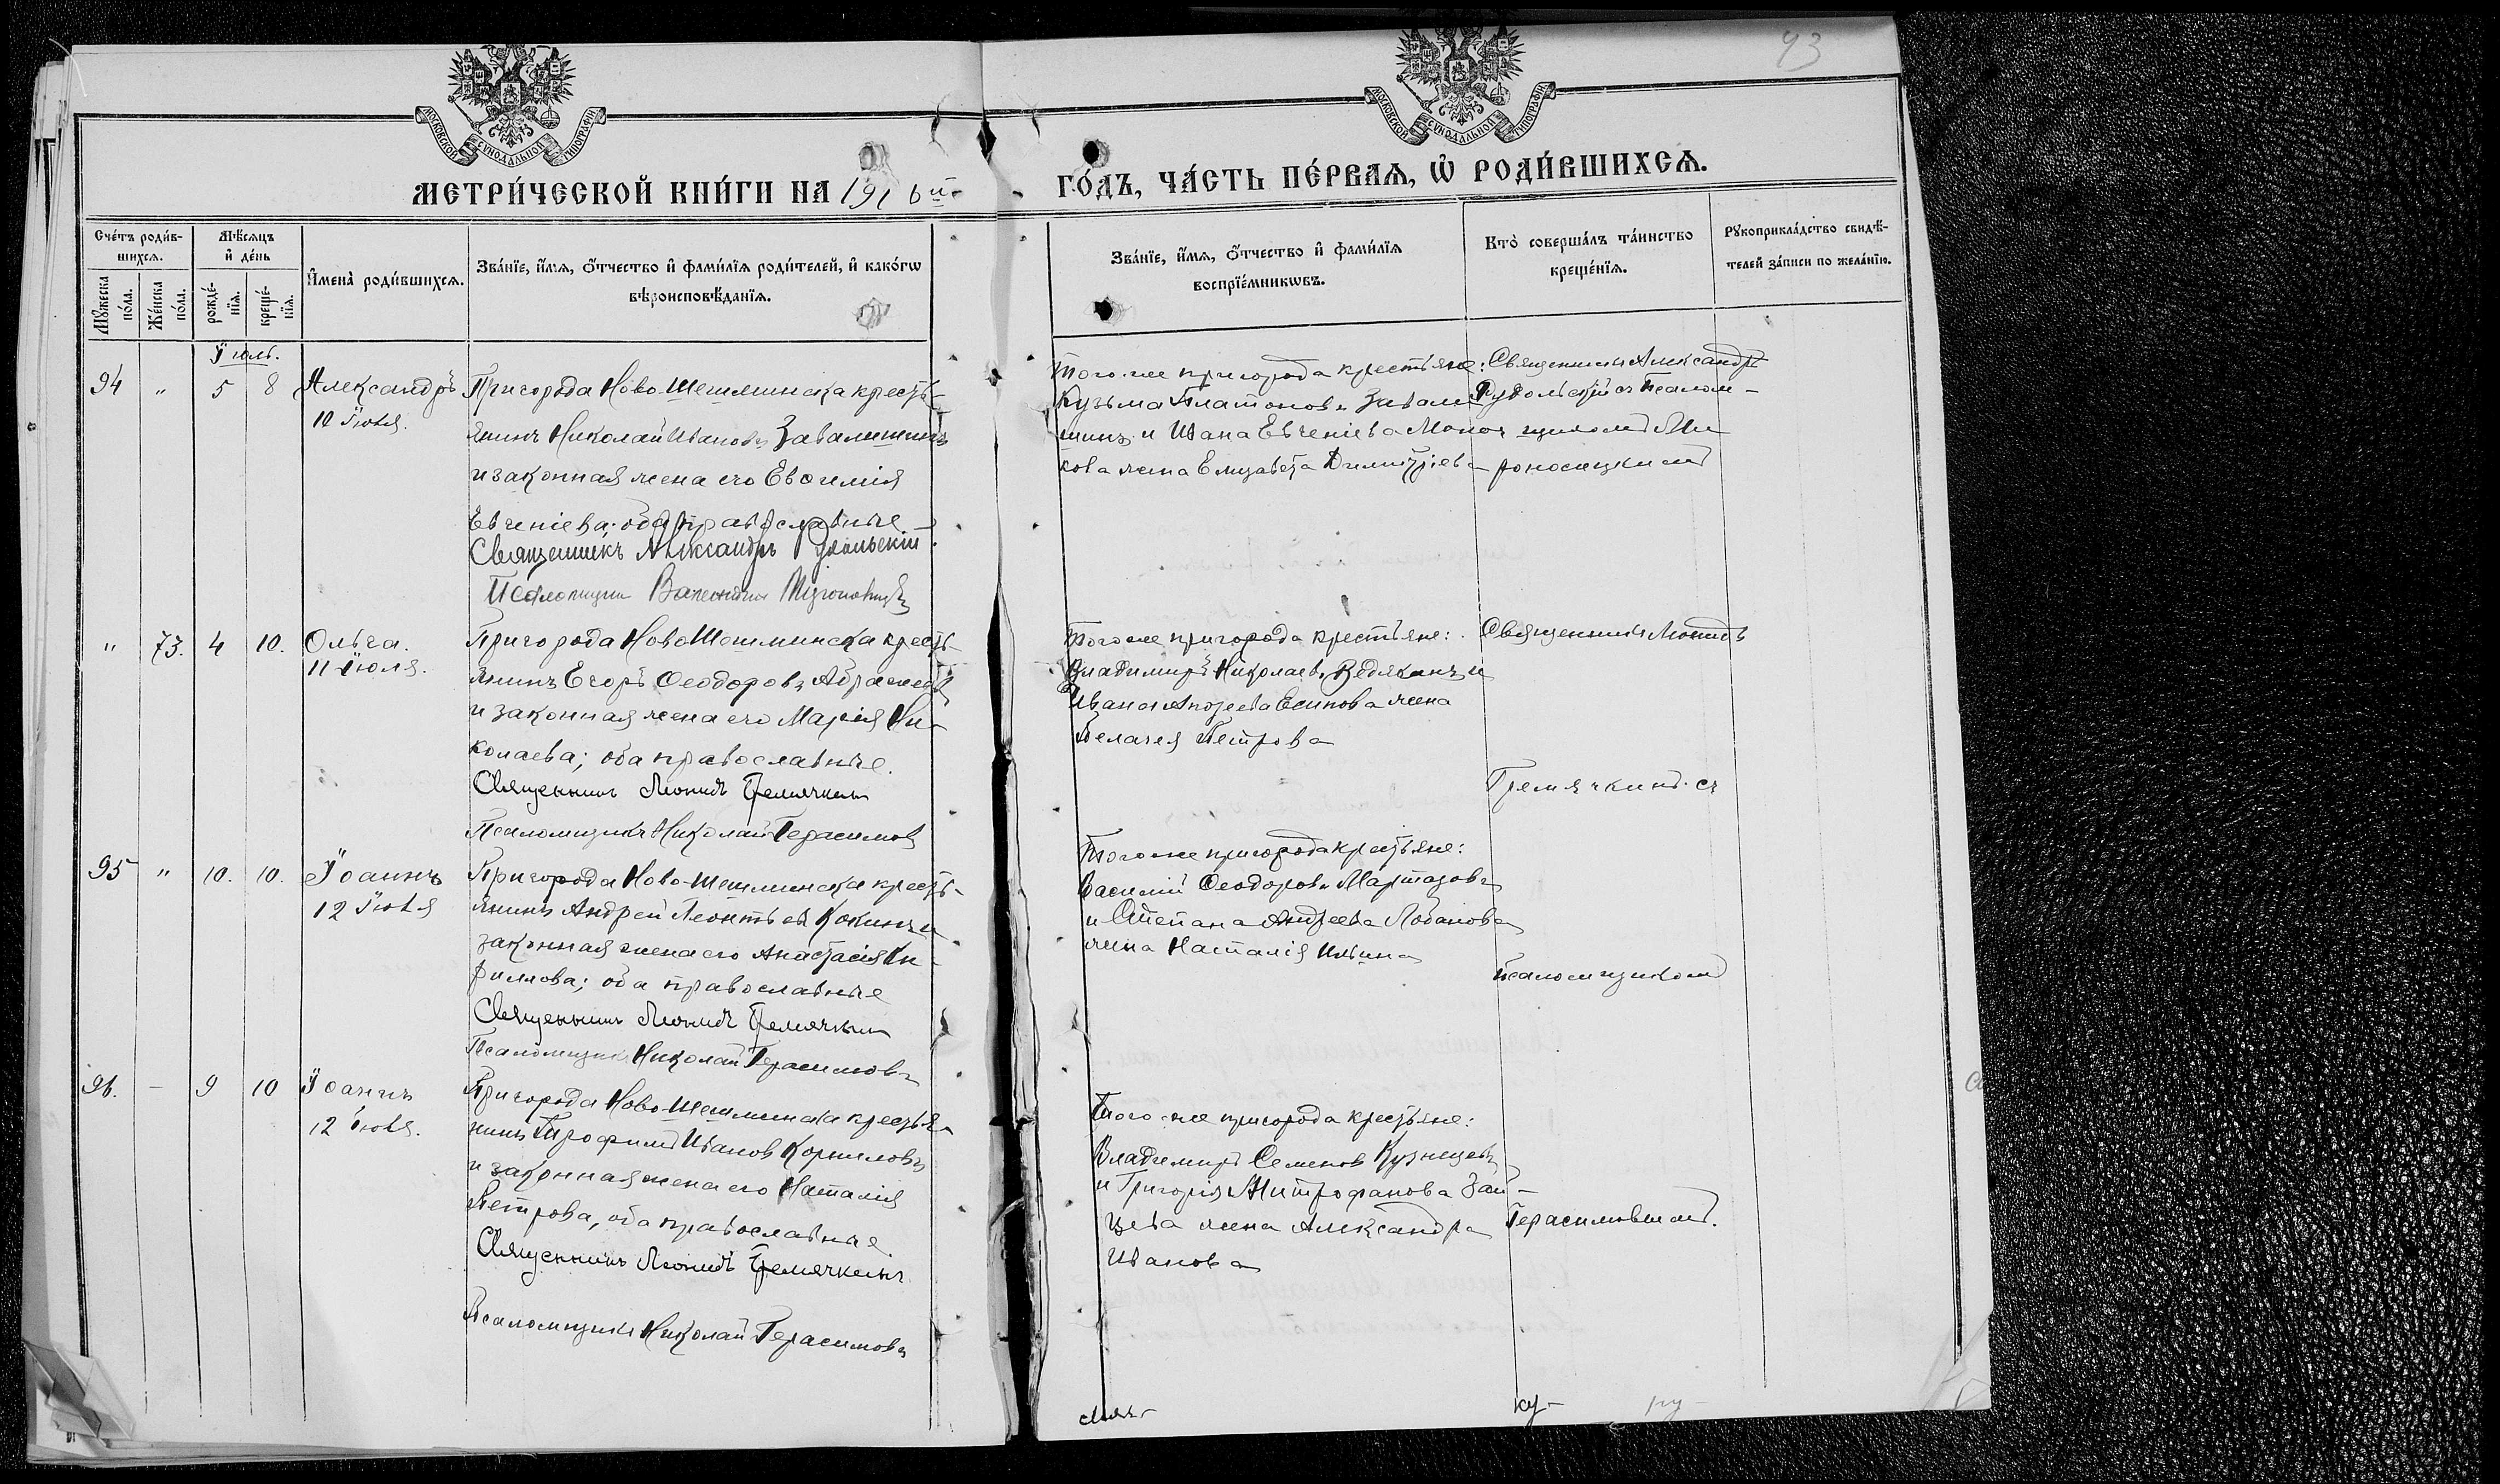 43
МОСКОВСКОЙ СѴНОДАЛЬНОЙ ТИПОГРАФІИ
МОСКОВСКОЙ СѴНОДАЛЬНОЙ ТИПОГРАФІИ
МЕТРИ́ЧЕСКОЙ КНИ́ГИ НА 1916й
ГО́ДЪ, ЧА́СТЬ ПЕ́РВАѦ, Ѽ РОДИ́ВШИХСѦ.
Сче́тъ роди́в-
шихсѧ.
Мꙋ́жеска по́ла.
Же́нска по́ла.
Мѣ́сѧцъ
и҆ де́нь
рожде́-
нїѧ.
креще́-
нїѧ.
И҆мена̀ роди́вшихсѧ.
Зва́нїе, и҆́мѧ, ѻ҆́тчество и҆ фами́лїѧ роди́телей, и҆ како́гѡ
вѣроисповѣ́данїѧ.
Зва́нїе, и҆́мѧ, ѻ҆́тчество и҆ фами́лїѧ
воспрїе́мникѡвъ.
Кто̀ соверша́лъ та́инство
креще́нїѧ.
Рꙋкоприкла́дство свидѣ́-
телей за́писи по жела́нїю.
Іюль.
94 " 5 8 Александръ
10 Іюля.
Пригорода Ново-Шешминска кресть-
янинъ Николай Ивановъ Завалишинъ
и законная жена его Евфимія
Евгеніева; оба православные
Священникъ Александръ Рудольскій
Псаломщикъ
Того-же пригорода крестьяне:
Кузьма Платоновъ Завали-
шинъ и Ивана Евгеніева
кова жена Елизавета Димитріева
Священникъ Александръ
Рудольскій съ псалом-
щикомъ Ми-
роносицкимъ
" 73. 4 10. Ольга.
11 Іюля.
Пригорода Ново-Шешминска кресть-
янинъ Егоръ Ѳеодоровъ
и законная жена его Марія Ни-
колаева; оба православные.
Священникъ Леонидъ Гремячкинъ
Псаломщикъ Николай Герасимовъ
Тогоже пригорода крестьяне:
Владимиръ Николаевъ Ведякинъ и
Ивана Андреева Есипова жена
Пелагея Петрова
Священникъ Леонидъ
Гремячкинъ съ
95 " 10. 10. Іоаннъ
12 Іюля
Пригорода Ново-Шешминска кресть-
янинъ Андрей Леонтьевъ Кокинъ и
законная жена его Анастасія Ки-
риллова; оба православные
Священникъ Леонидъ Гремячкинъ
Псаломщикъ Николай Герасимовъ
Тогоже пригорода крестьяне:
Василій Ѳеодоровъ
и Степана Андреева Лобанова
жена Наталія Ильина
псаломщикомъ
96. - 9 10 Іоаннъ
12 Іюля.
Пригорода Ново-Шешминска крестья-
нинъ Трофимъ Ивановъ Корниловъ
и законная жена его Наталія
Петрова, оба православные.
Священникъ Леонидъ Гремячкинъ
Псаломщикъ Николай Герасимовъ
Того-же пригорода крестьяне:
Владимиръ Семеновъ Кузнецовъ
и Григорія Митрофанова Зай-
цева жена Александра
Иванова
Герасимовымъ.
ку-